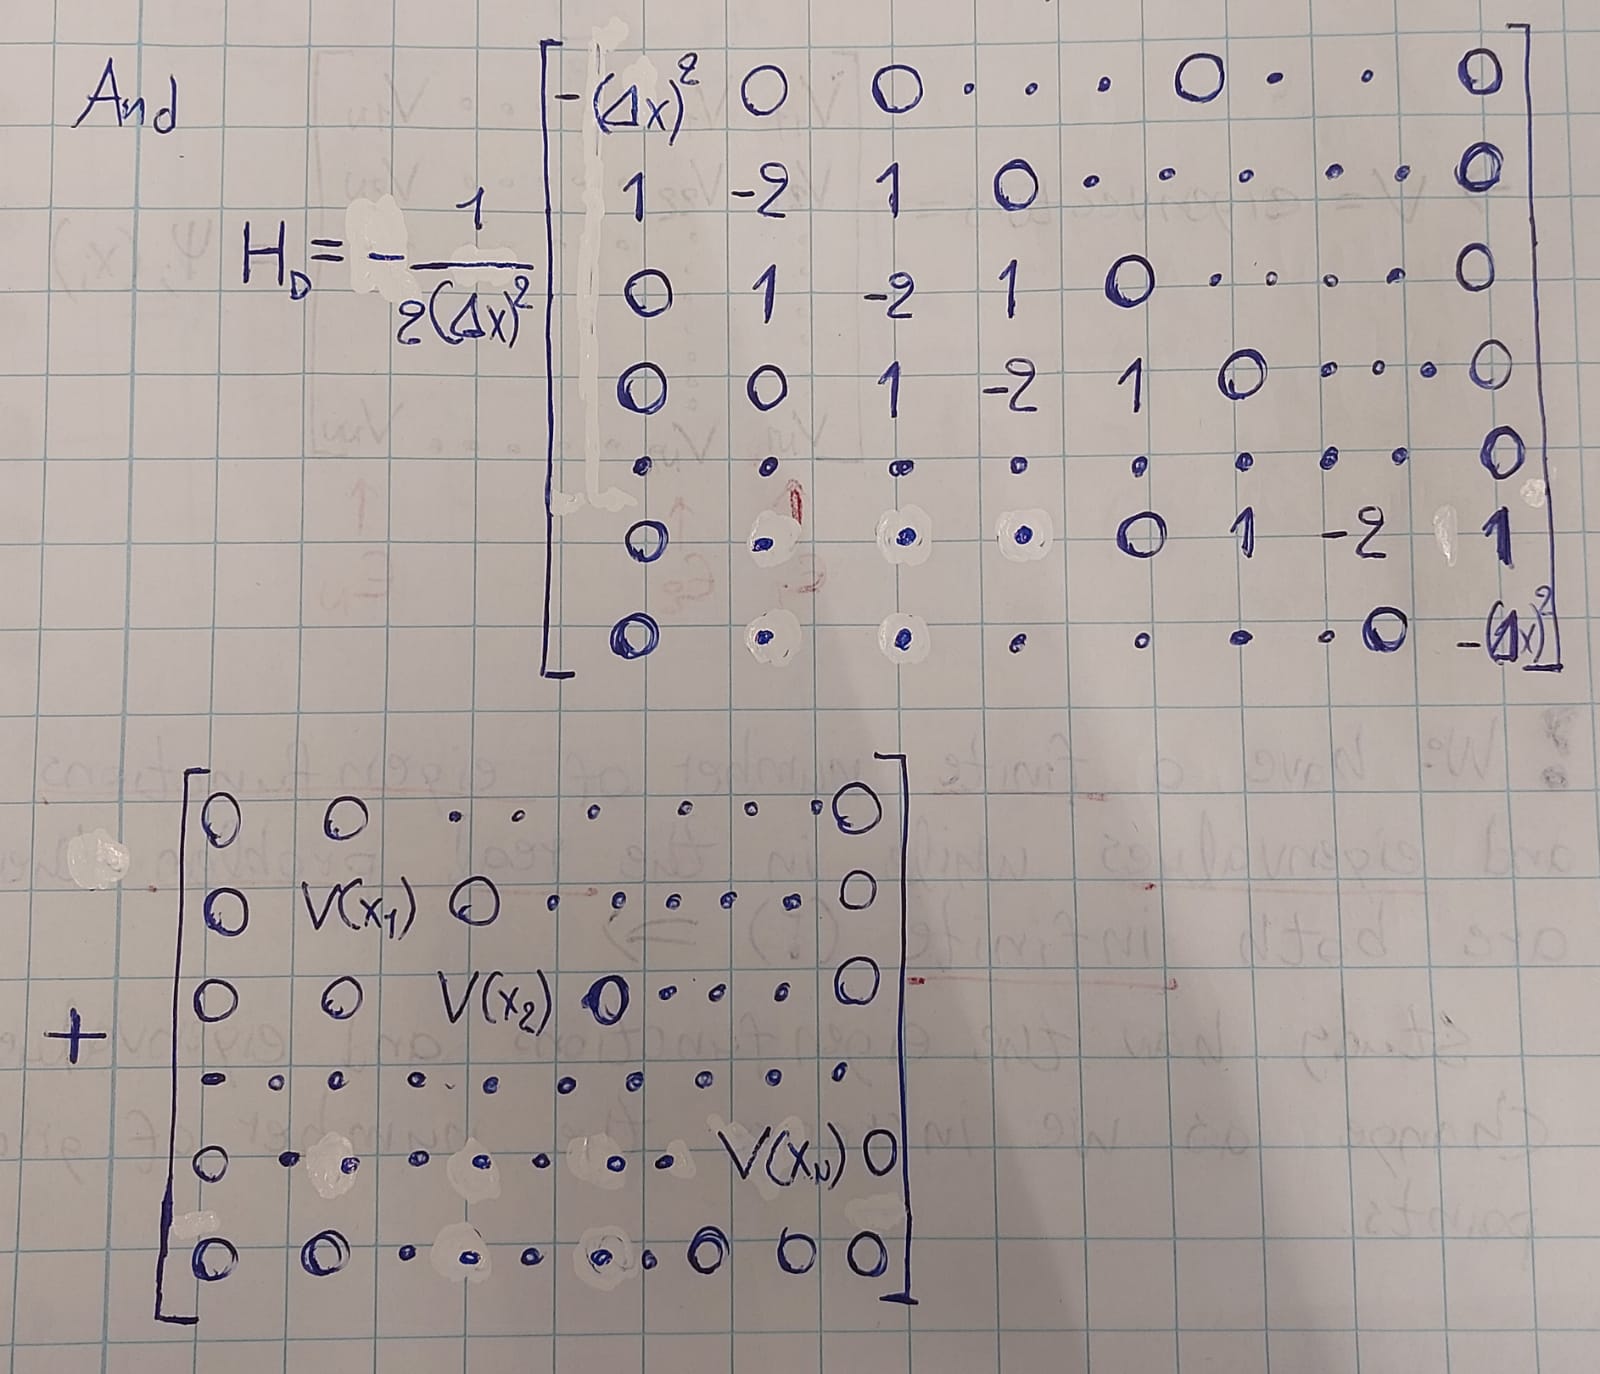 And
H_D = - 1 / 2(Δx)^2
[ -(Δx)^2 0 0 . . . 0 . . 0
1 -2 1 0 . . . . . 0
0 1 -2 1 0 . . . . 0
0 0 1 -2 1 0 . . . 0
. . . . . . . . 0
0 . . . 0 1 -2 1
0 . . . . . . 0 -(Δx)^2 ]
+
[ 0 0 . . . . . . 0
0 V(x_1) 0 . . . . . 0
0 0 V(x_2) 0 . . . 0
. . . . . . . . . .
0 . . . . . . . . V(x_N) 0
0 0 . . . . . 0 0 0 ]